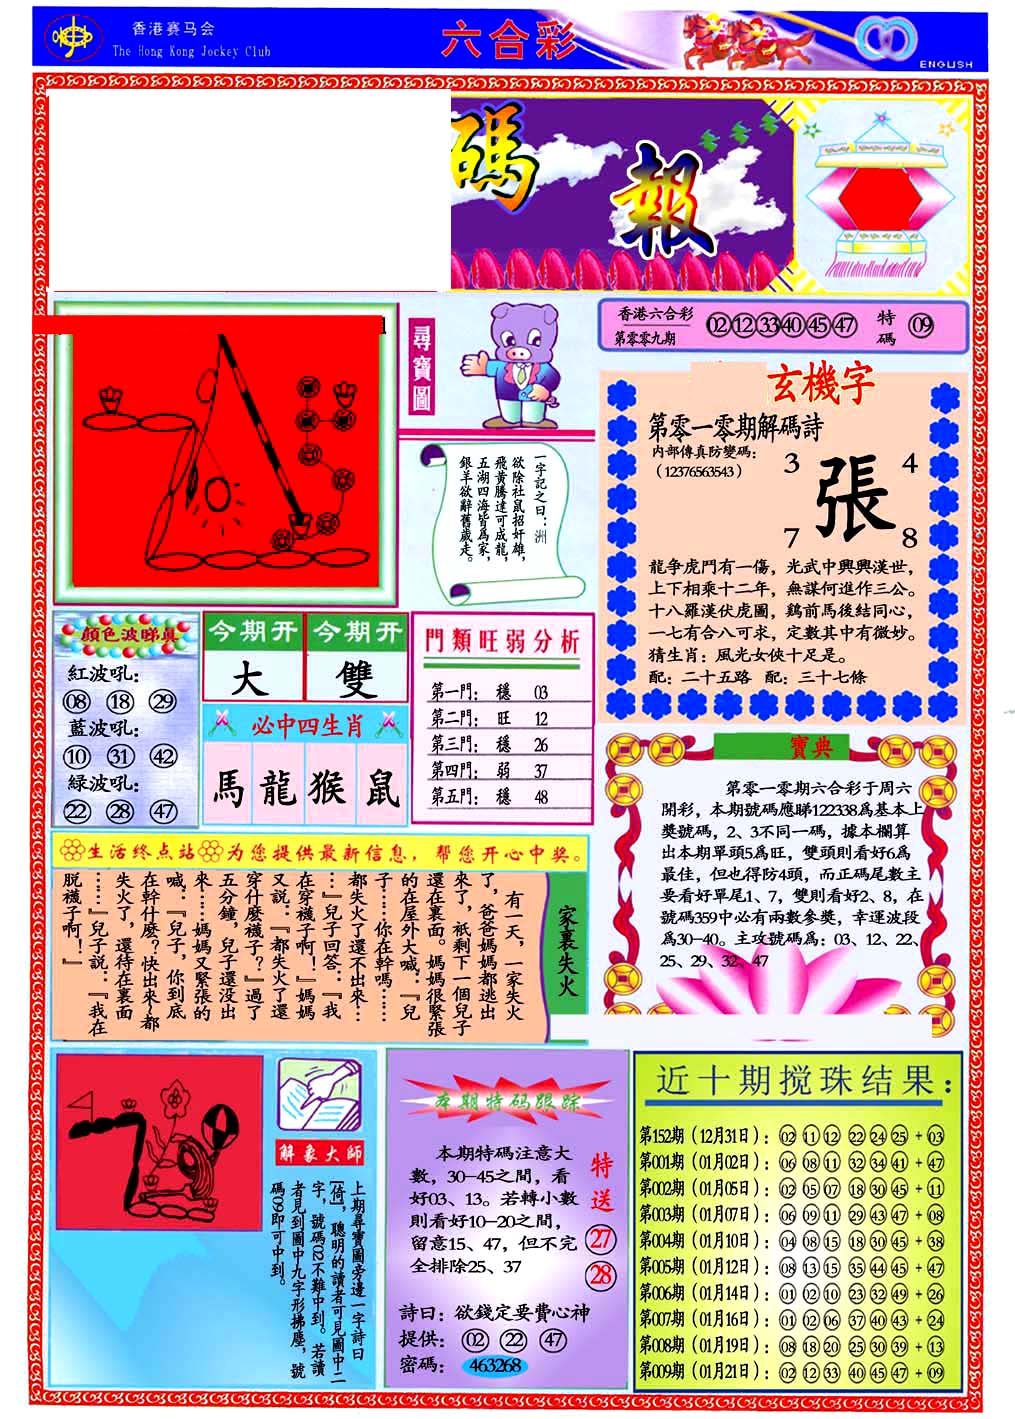 香港赛马会
The Hong Kong Jockey Club
六合彩
ENGLISH
碼報
1
尋寶圖
香港六合彩
第零零九期
02 12 33 40 45 47 特碼 09
一字記之曰：洲
欲除社鼠招奸雄，
飛黃騰達可成龍，
五湖四海皆爲家，
銀羊欲辭舊歲走。
玄機字
第零一零期解碼詩
内部傳真防變碼：
（12376563543）
3 4
張
7 8
龍争虎鬥有一傷，光武中興興漢世，
上下相乘十二年，無謀何進作三公。
十八羅漢伏虎圖，鷄前馬後結同心，
一七有合八可求，定數其中有微妙。
猜生肖：風光女俠十足是。
配：二十五路 配：三十七條
顏色波睇真
紅波吼：
08 18 29
藍波吼：
10 31 42
緑波吼：
22 28 47
今期开 今期开
大 雙
必中四生肖
馬 龍 猴 鼠
門類旺弱分析
第一門： 穩 03
第二門： 旺 12
第三門： 穩 26
第四門： 弱 37
第五門： 穩 48
寶典
第零一零期六合彩于周六
開彩，本期號碼應睇122338爲基本上
獎號碼，2、3不同一碼，據本欄算
出本期單頭5爲旺，雙頭則看好6爲
最佳，但也得防4頭，而正碼尾數主
要看好單尾1、7，雙則看好2、8，在
號碼359中必有兩數參獎，幸運波段
爲30-40。主攻號碼爲：03、12、22、
25、29、32、47
生活终点站 为您提供最新信息，帮您开心中奖。
家裏失火
有一天，一家失火
了，爸爸媽媽都逃出
來了，祇剩下一個兒子
還在裏面。媽媽很緊張
的在屋外大喊：『兒
子……你在幹嗎……
都失火了還不出來…
…』兒子回答：『我
在穿襪子啊！』媽媽
又説：『都失火了還
穿什麽襪子？』過了
五分鐘，兒子還没出
來……媽媽又緊張的
喊：『兒子，你到底
在幹什麽？快出來~都
失火了，還待在裏面
……』兒子説：『我在
脱襪子啊！』
解象大師
上期尋寶圖旁邊一字詩曰
[倚]，聰明的讀者可見圖中二
字，號碼02不難中到。若讀
者見到圖中九字形拂塵，號
碼09即可中到。
本期特码跟踪
本期特碼注意大
數，30-45之間，看
好03、13。若轉小數
則看好10-20之間，
留意15、47，但不完
全排除25、37
特送
27
28
詩曰：欲錢定要費心神
提供： 02 22 47
密碼： 463268
近十期搅珠结果：
第152期（12月31日）：02 11 12 22 24 25 + 03
第001期（01月02日）：06 08 11 32 34 41 + 47
第002期（01月05日）：02 05 07 18 30 45 + 11
第003期（01月07日）：06 09 11 29 43 47 + 08
第004期（01月10日）：04 08 15 18 30 45 + 38
第005期（01月12日）：08 13 15 35 44 45 + 47
第006期（01月14日）：01 02 10 23 32 49 + 26
第007期（01月16日）：01 02 06 37 40 43 + 24
第008期（01月19日）：08 18 20 25 30 39 + 13
第009期（01月21日）：02 12 33 40 45 47 + 09